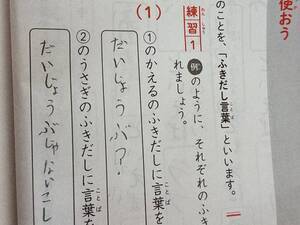 使おう
のことを、「ふきだし言葉」といいます。
ことば
練習1
れんしゅう
例のように、それぞれのふき
れい
れましょう。
(1)
①のかえるのふきだしに言葉を
ことば
だいじょうぶ?
②のうさぎのふきだしに言葉を
ことば
だいじょうぶじゃないこし